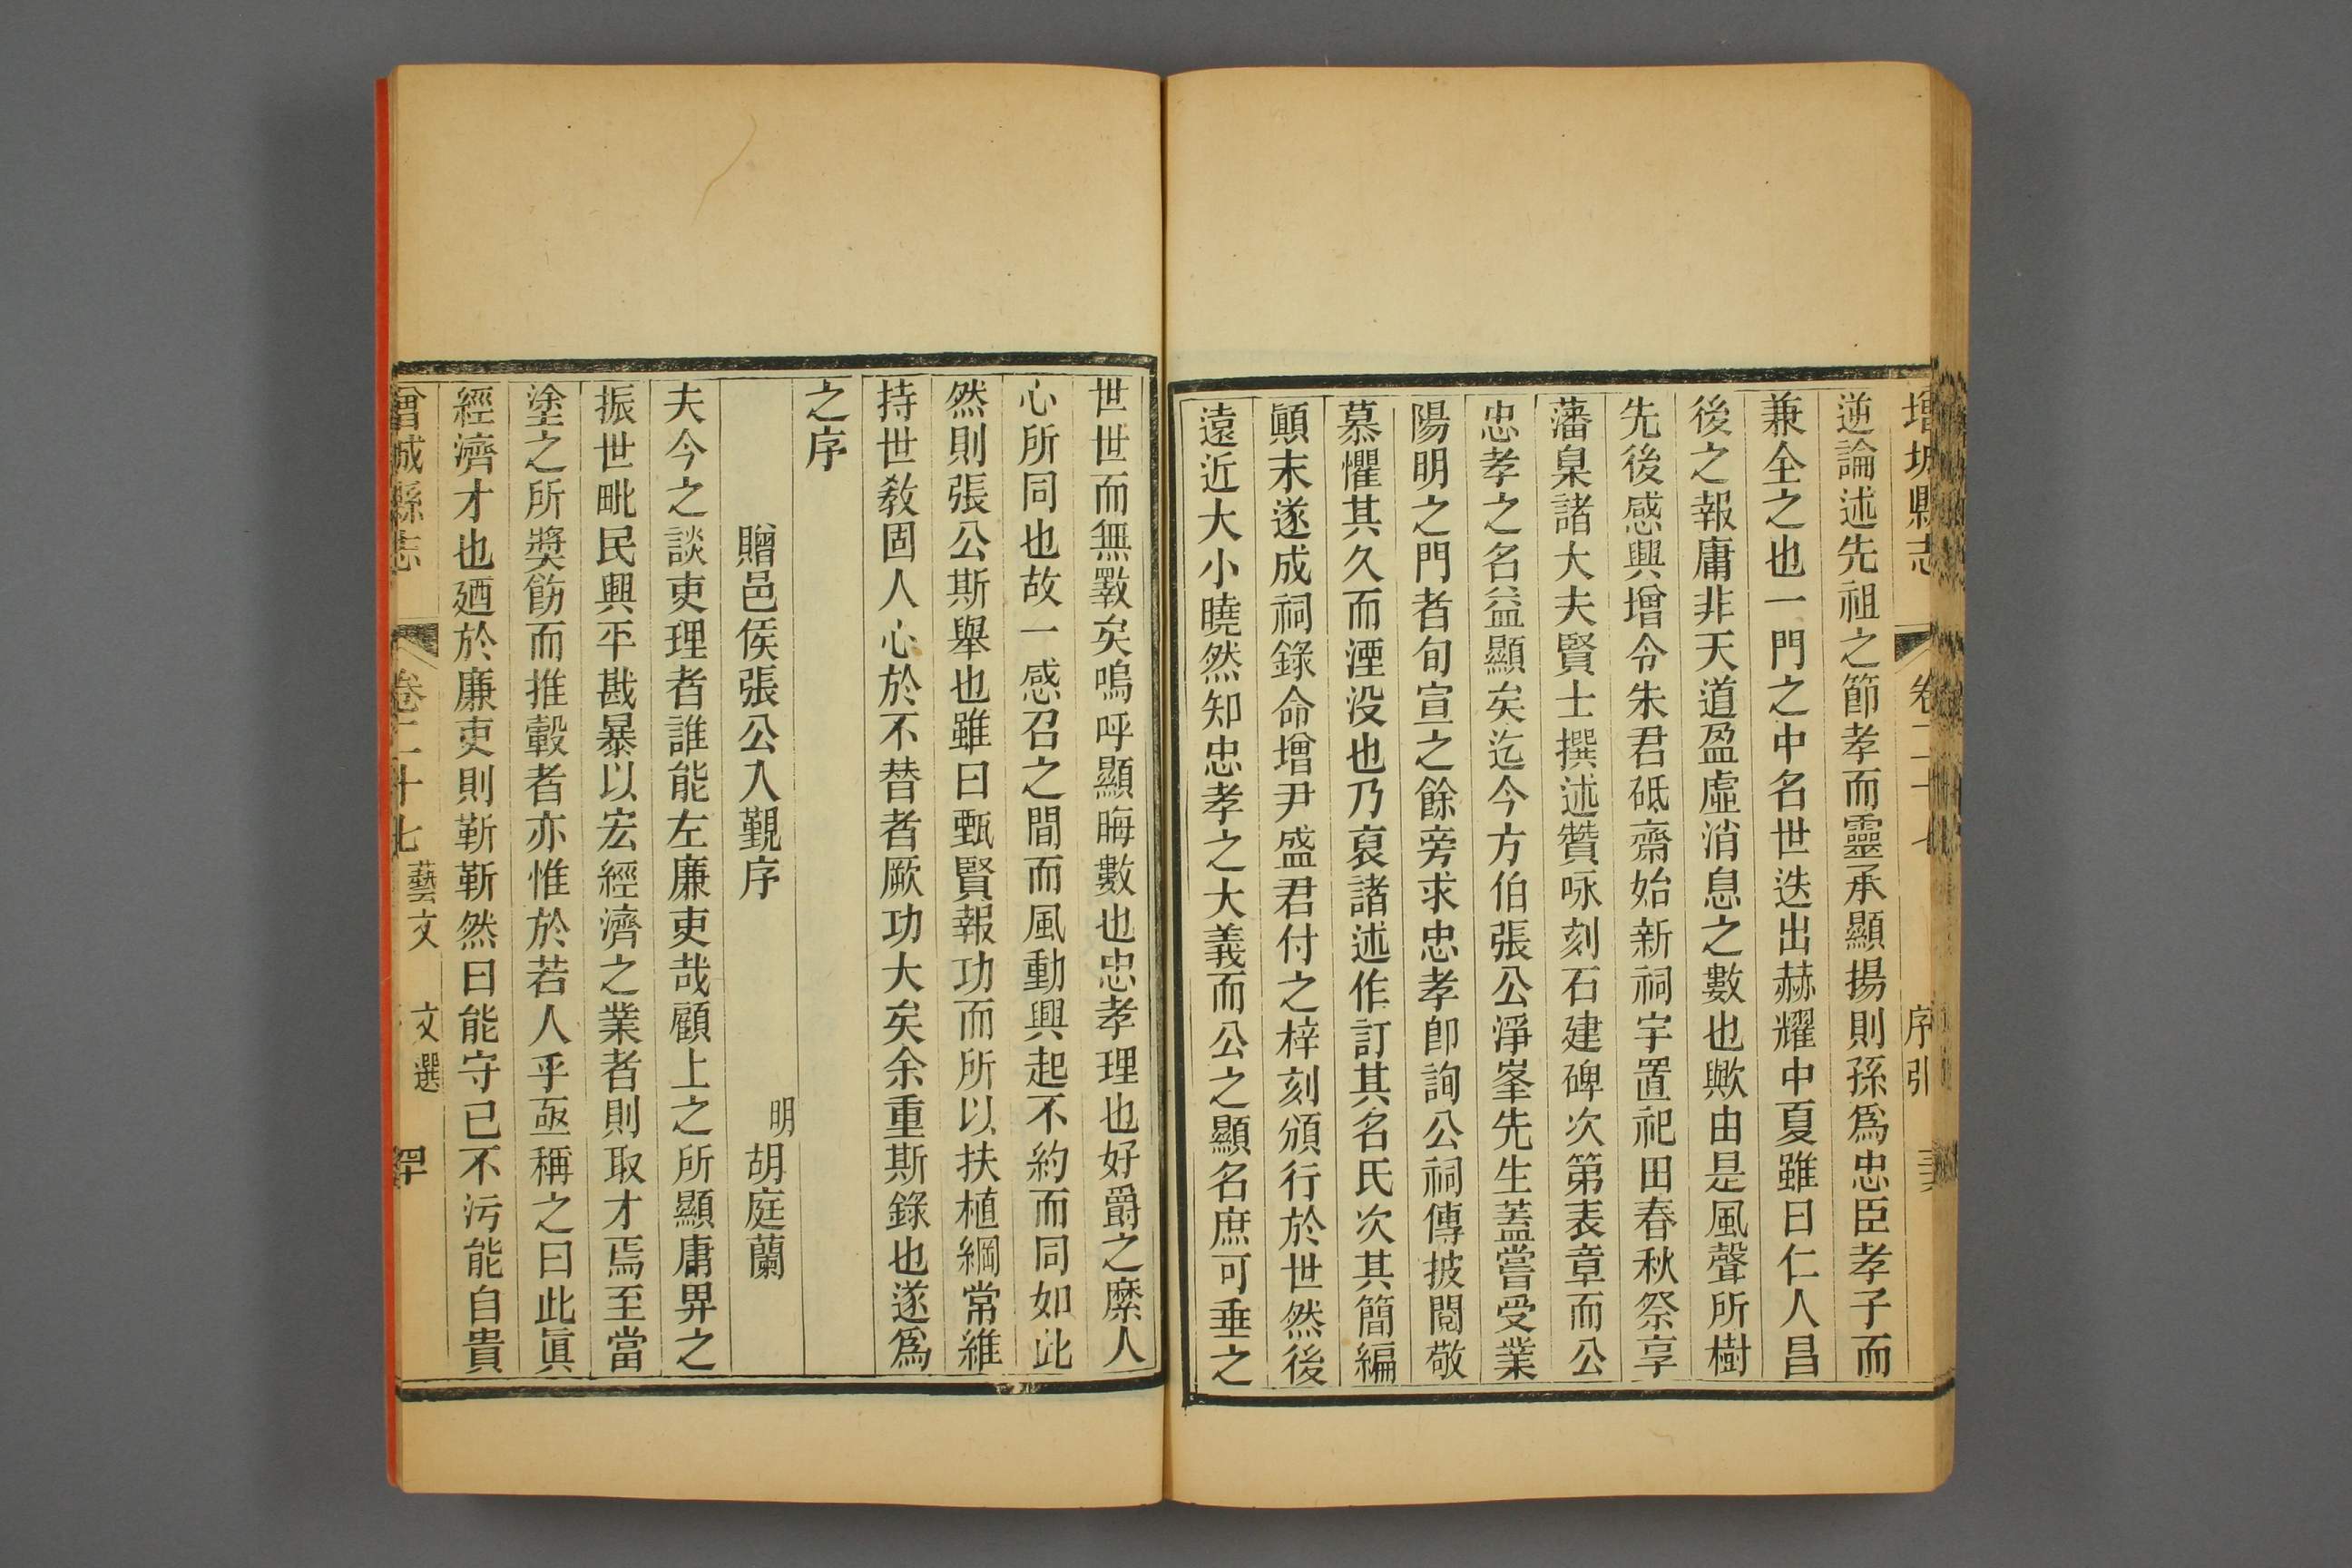 增城縣志 卷二十七 序引
逆論述先祖之節孝而靈承顯揚則孫爲忠臣孝子而
兼全之也一門之中名世迭出赫耀中夏雖曰仁人昌
後之報庸非天道盈虛消息之數也歟由是風聲所樹
先後感興增令朱君砥齋始新祠宇置祀田春秋祭享
藩臬諸大夫賢士撰述贊咏刻石建碑次第表章而公
忠孝之名益顯矣迄今方伯張公淨峯先生蓋嘗受業
陽明之門者旬宣之餘旁求忠孝卽詢公祠傳披閱敬
慕懼其久而湮没也乃裒諸述作訂其名氏次其簡編
顚末遂成祠錄命增尹盛君付之梓刻頒行於世然後
遠近大小曉然知忠孝之大義而公之顯名庶可垂之
世世而無斁矣嗚呼顯晦數也忠孝理也好爵之縻人
心所同也故一感召之間而風動興起不約而同如此
然則張公斯舉也雖曰甄賢報功而所以扶植綱常維
持世敎固人心於不替者厥功大矣余重斯錄也遂爲
之序
贈邑侯張公入覲序 明 胡庭蘭
夫今之談吏理者誰能左廉吏哉顧上之所顯庸畀之
振世毗民興平戡暴以宏經濟之業者則取才焉至當
塗之所獎飭而推轂者亦惟於若人乎亟稱之曰此眞
經濟才也廼於廉吏則靳靳然曰能守已不污能自貴
曾城縣志 卷二十七 藝文 文選